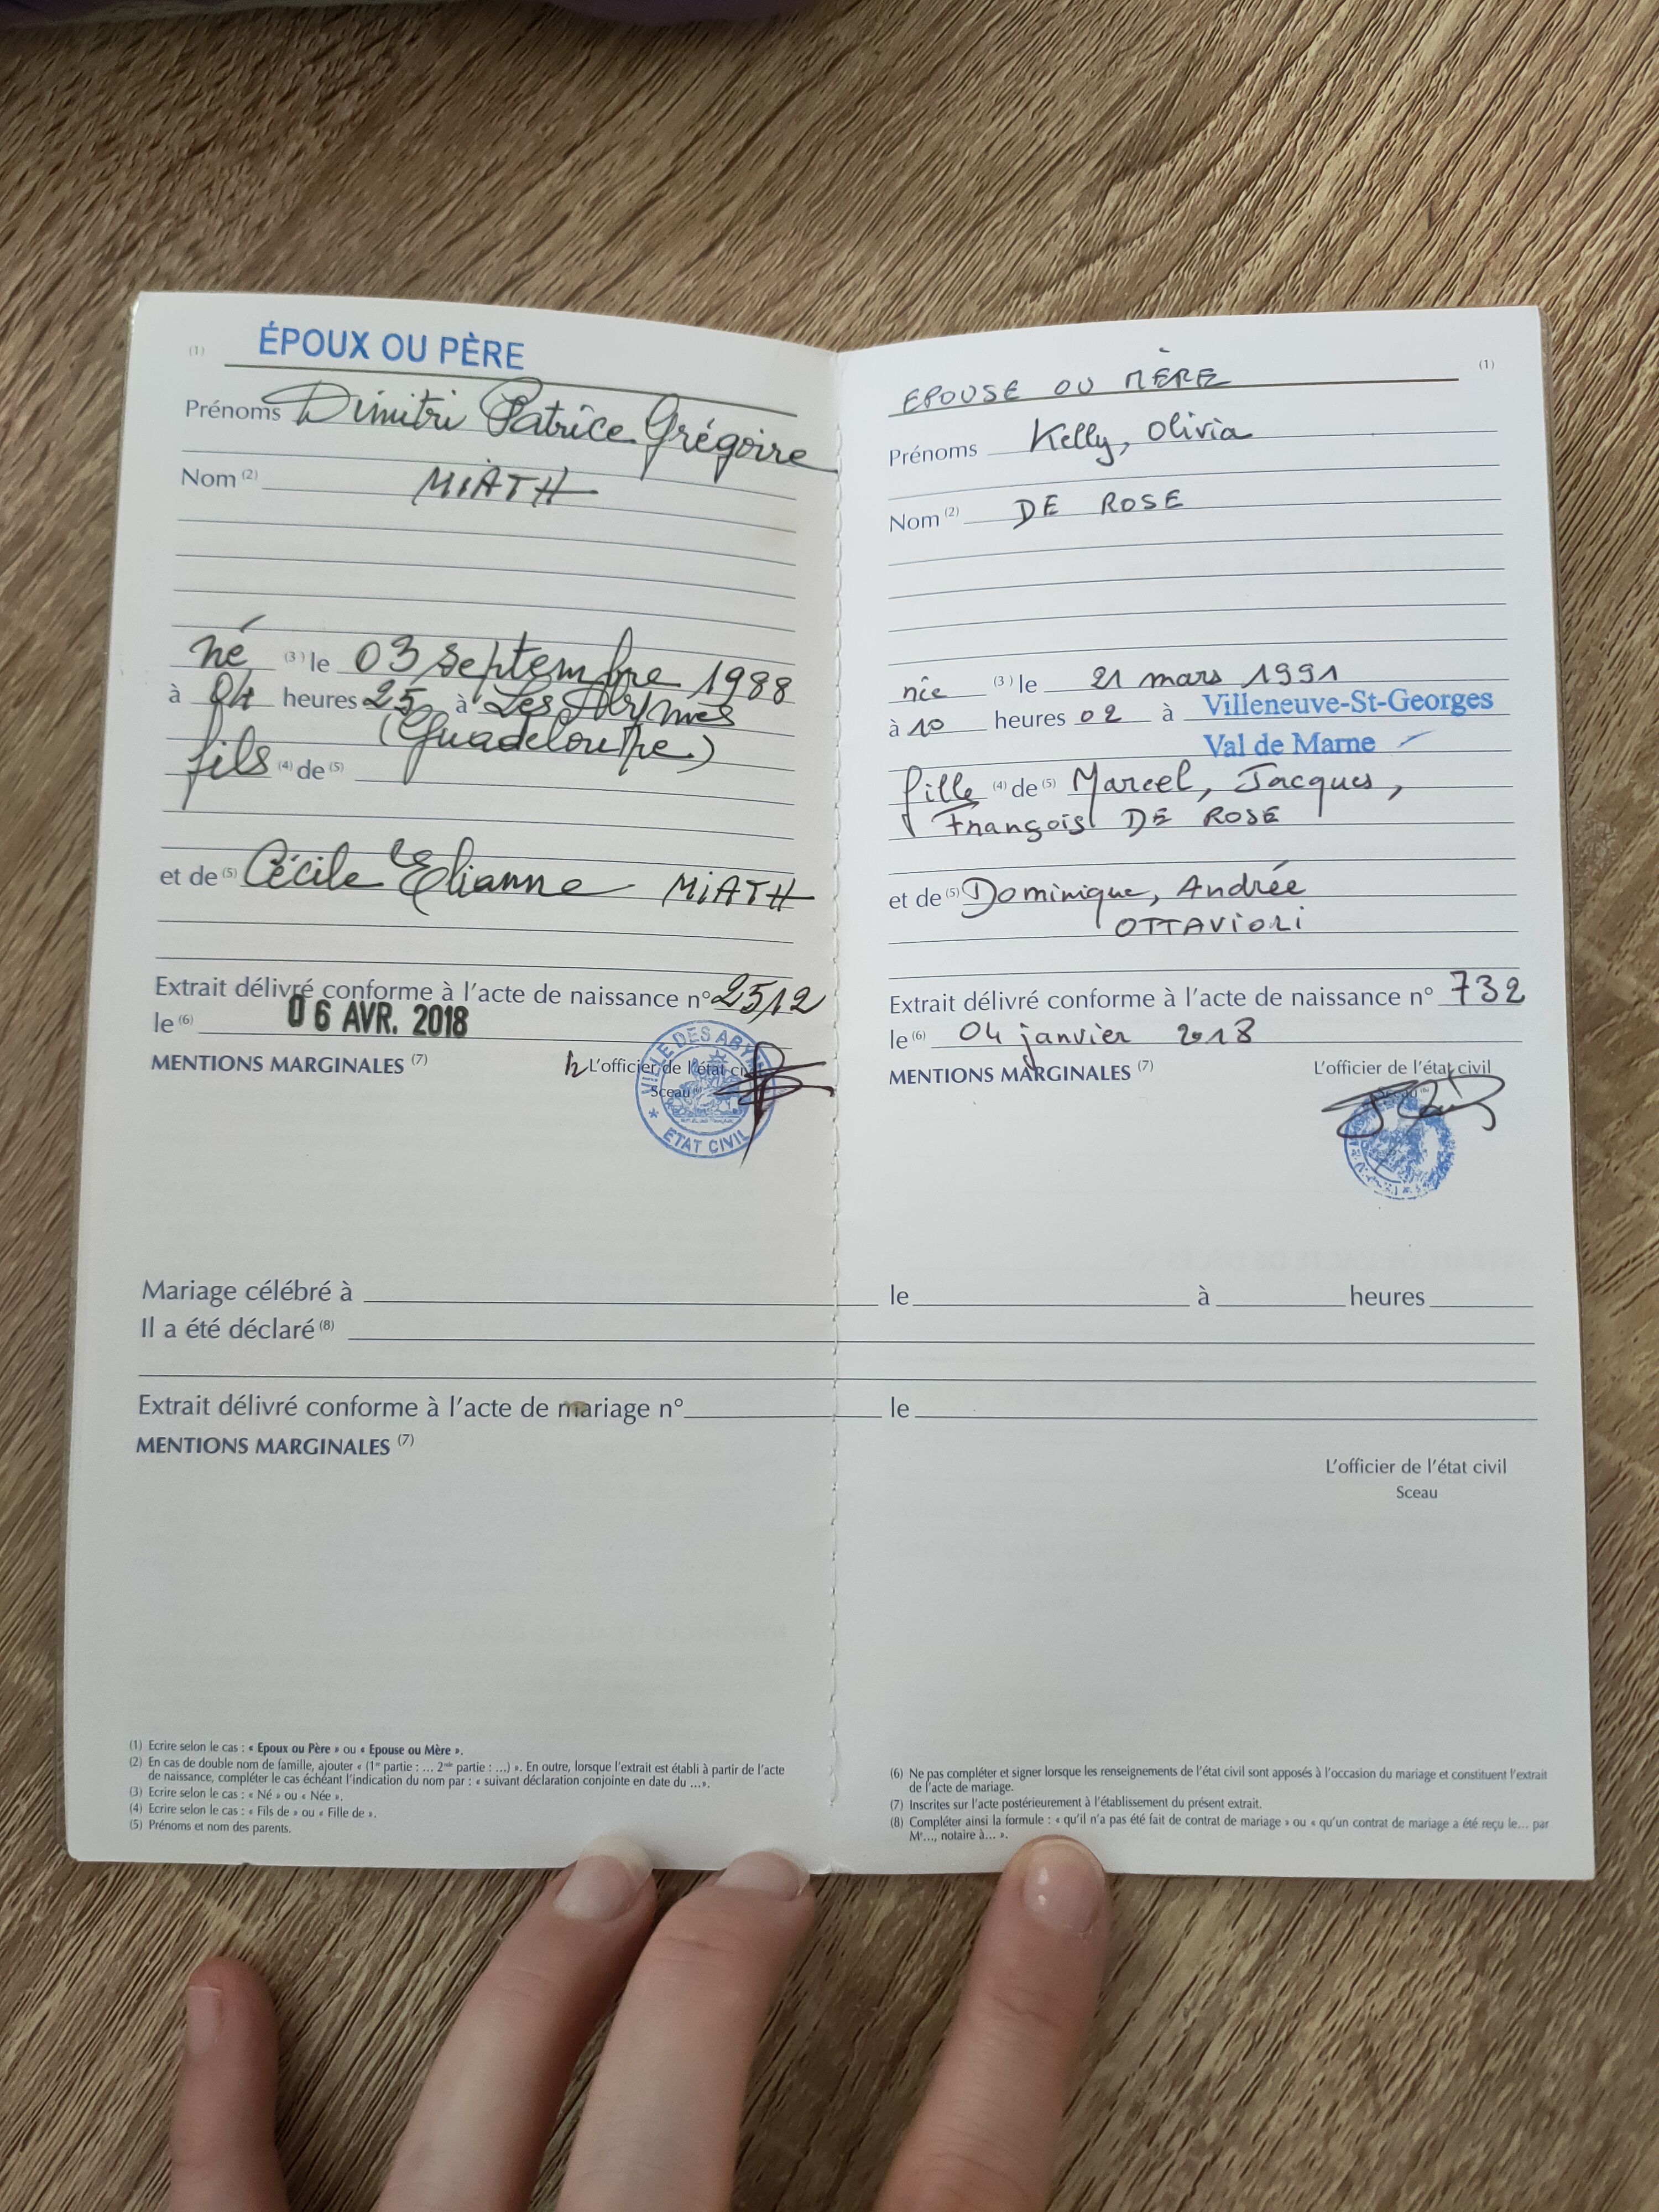 (1) ÉPOUX OU PÈRE
Prénoms Dimitri Patrice Grégoire
Nom (2) MIATH
né (3) le 03 septembre 1988
à 04 heures 25 à Les Abymes
(Guadeloupe)
fils (4) de (5)
et de (5) Cécile Elianne MIATH
Extrait délivré conforme à l'acte de naissance n° 2512
le (6) 06 AVR. 2018
MENTIONS MARGINALES (7)
L'officier de l'état civil
Sceau
VILLE DES ABYMES
ETAT CIVIL
EPOUSE OU MÈRE (1)
Prénoms Kelly, Olivia
Nom (2) DE ROSE
née (3) le 21 mars 1991
à 10 heures 02 à Villeneuve-St-Georges
Val de Marne
fille (4) de (5) Marcel, Jacques,
François DE ROSE
et de (5) Dominique, Andrée
OTTAVIOLI
Extrait délivré conforme à l'acte de naissance n° 732
le (6) 04 janvier 2018
MENTIONS MARGINALES (7)
L'officier de l'état civil
Mariage célébré à le à heures
Il a été déclaré (8)
Extrait délivré conforme à l'acte de mariage n° le
MENTIONS MARGINALES (7)
L'officier de l'état civil
Sceau
(1) Ecrire selon le cas : « Epoux ou Père » ou « Epouse ou Mère ».
(2) En cas de double nom de famille, ajouter « (1re partie : ... 2nde partie : ...) ». En outre, lorsque l'extrait est établi à partir de l'acte
de naissance, compléter le cas échéant l'indication du nom par : « suivant déclaration conjointe en date du ...».
(3) Ecrire selon le cas : « Né » ou « Née ».
(4) Ecrire selon le cas : « Fils de » ou « Fille de ».
(5) Prénoms et nom des parents.
(6) Ne pas compléter et signer lorsque les renseignements de l'état civil sont apposés à l'occasion du mariage et constituent l'extrait
de l'acte de mariage.
(7) Inscrites sur l'acte postérieurement à l'établissement du présent extrait.
(8) Compléter ainsi la formule : « qu'il n'a pas été fait de contrat de mariage » ou « qu'un contrat de mariage a été reçu le... par
Me..., notaire à... ».